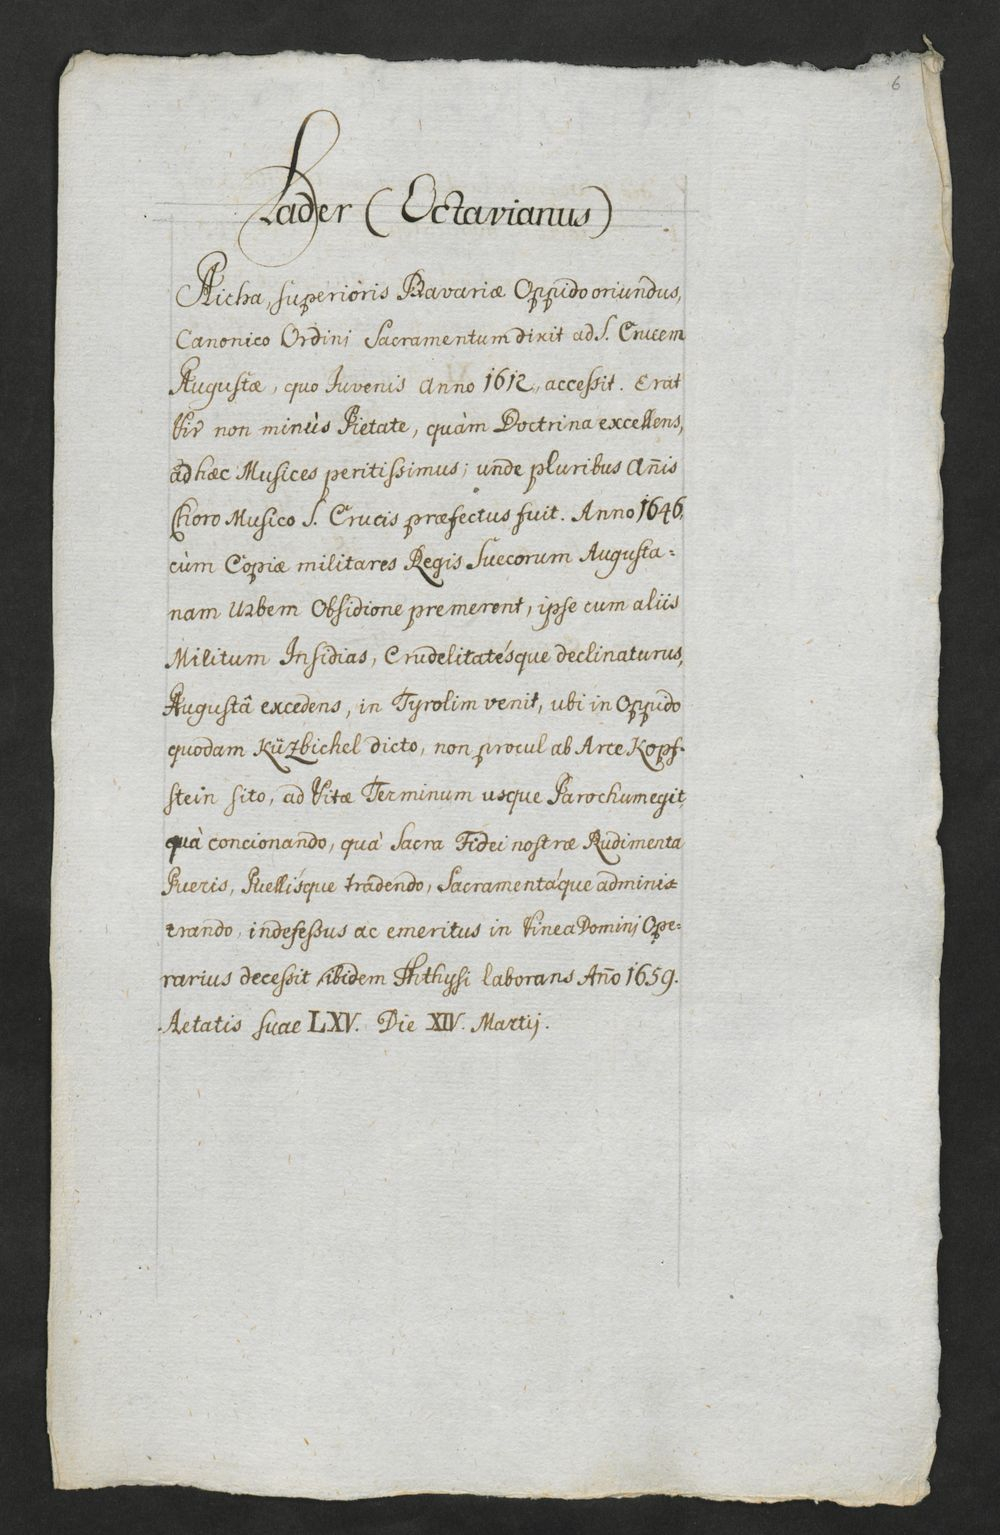 6
Lader (Octavianus)
Aicha, superioris Bavariæ Oppido oriundus,
Canonico Ordini Sacramentum dixit ad S. Crucem
Augustæ, quo Iuvenis Anno 1612, accessit. Erat
Vir non minùs Pietate, quàm Doctrina excellens,
ad hæc Musices peritissimus; unde pluribus Añis
Choro Musico S. Crucis præfectus fuit. Anno 1646,
cùm Copiæ militares Regis Suecorum Augusta=
nam Urbem Obsidione premerent, ipse cum aliis
Militum Insidias, Crudelitatésque declinaturus,
Augustâ excedens, in Tyrolim venit, ubi in Oppido
quodam Küzbichel dicto, non procul ab Arce Kopf-
stein sito, ad Vitæ Terminum usque Parochum egit,
quà concionando, quà Sacra Fidei nostræ Rudimenta
Pueris, Puellísque tradendo, Sacramentáque adminis=
trando, indefessus ac emeritus in Vinea Domini Ope=
rarius decessit ibidem Phthysi laborans Año 1659.
Aetatis suae LXV. Die XIV. Martij.